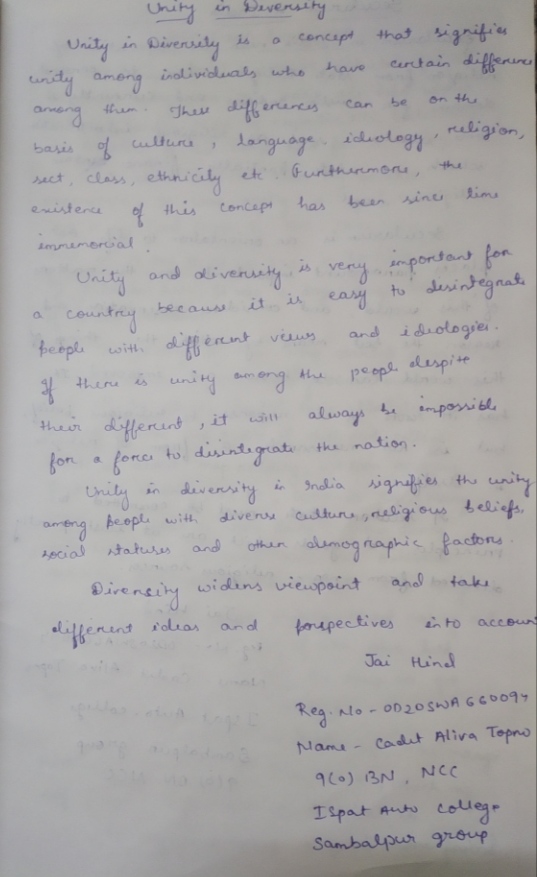 Unity in Diversity
Unity in Diversity is a concept that signifies
unity among individuals who have certain difference
among them. These differences can be on the
basis of culture, language, ideology, religion,
sect, class, ethnicity etc. Furthermore, the
existence of this concept has been since time
immemorial.
Unity and diversity is very important for
a country because it is easy to desintegrate
people with different views and ideologies.
If there is unity among the people despite
their different, it will always be impossible
for a force to disintegrate the nation.
Unity in diversity in India signifies the unity
among people with diverse culture, religious beliefs,
social statuses and other demographic factors.
Diversity widens viewpoint and take
different ideas and perspectives into account
Jai Hind
Reg. No - OD20SWA660097
Name - Cadet Aliva Topno
9(O) BN, NCC
Ispat Auto college
Sambalpur group